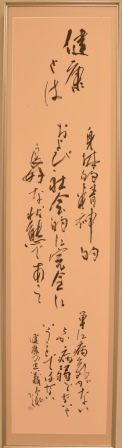 健康
とは
身体的精神的
および社会的に完全に
良好な状態であって
単に病気がない
とか病弱でないと
いうことではない